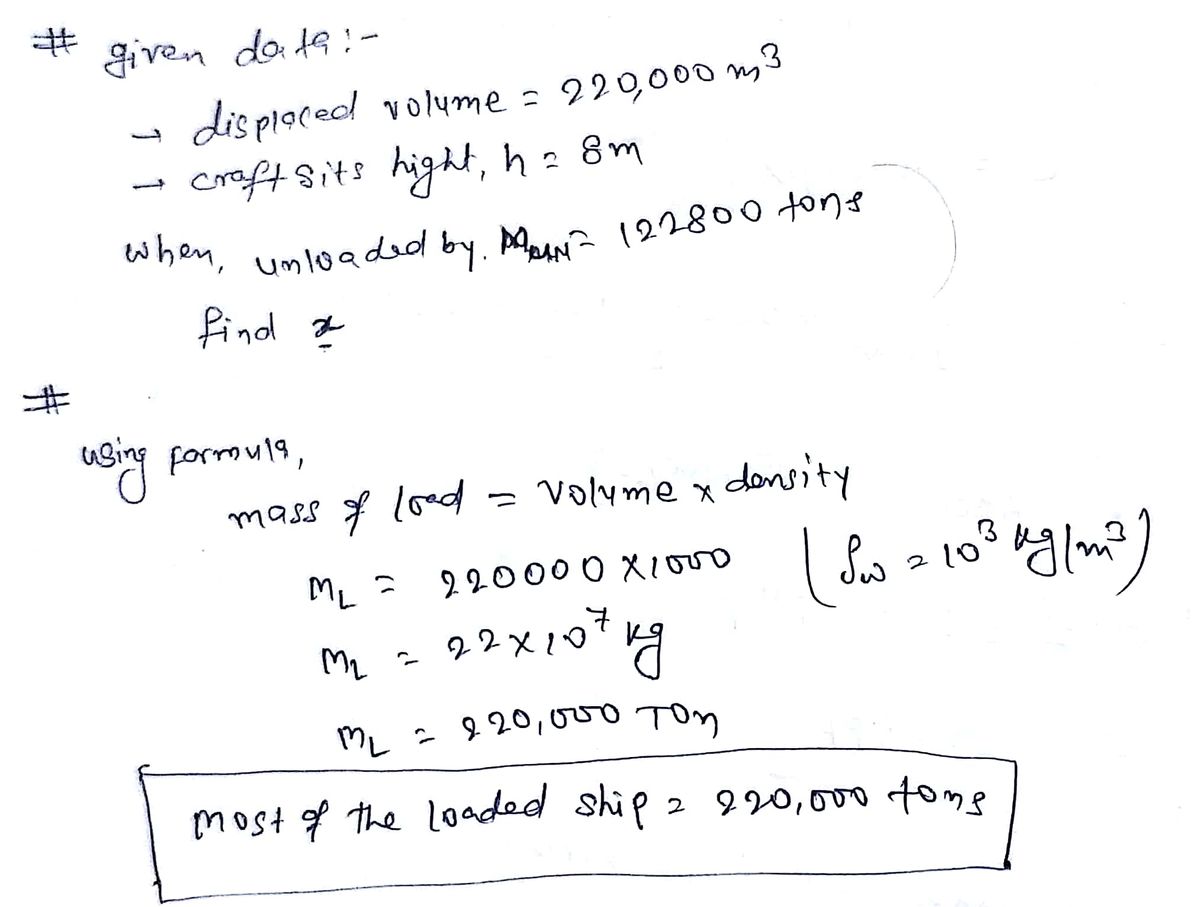 # given data :-
→ displaced volume = 220,000 m³
→ craft sits hight, h = 8m
when, unloaded by. = 122800 tons
find x
#
using formula,
mass of load = volume x density
M_L = 220000 X 1000 (ρw = 10³ kg/m³)
M_L = 22 x 10⁷ kg
M_L = 220,000 TOn
most of the loaded ship = 220,000 tons